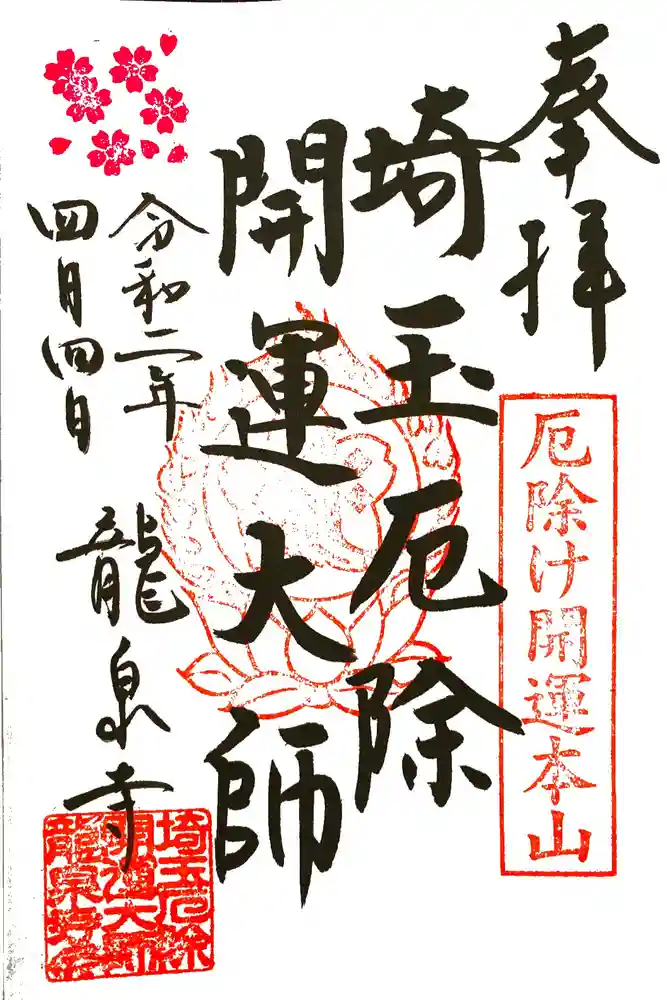 奉拝
厄除け開運本山
埼玉厄除
開運大師
令和二年
四月四日
龍泉寺
埼玉厄除
開運大師
龍泉寺